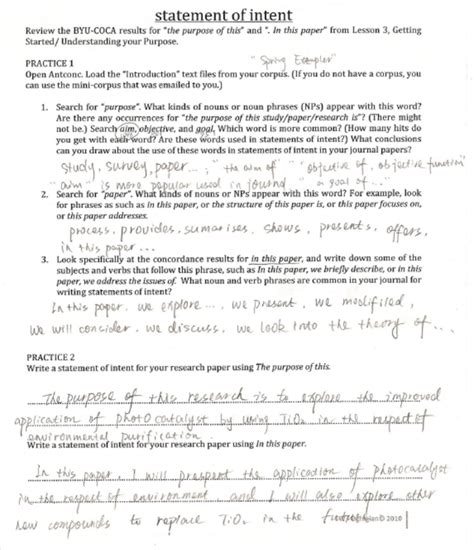 statement of intent
Review the BYU-COCA results for "the purpose of this" and ". In this paper" from Lesson 3, Getting
Started/ Understanding your Purpose.
PRACTICE 1
"Spring Exampler"
Open Antconc. Load the "Introduction" text files from your corpus. (If you do not have a corpus, you
can use the mini-corpus that was emailed to you.)
1. Search for "purpose". What kinds of nouns or noun phrases (NPs) appear with this word?
Are there any occurrences for "the purpose of this study/paper/research is"? (There might
not be.) Search aim, objective, and goal. Which word is more common? (How many hits do
you get with each word? Are these words used in statements of intent?) What conclusions
can you draw about the use of these words in statements of intent in your journal papers?
study, survey, paper...; "the aim of" "objective of, objective function"
"aim" is more popular used in journal "a goal of..."
2. Search for "paper". What kinds of nouns or NPs appear with this word? For example, look
for phrases as such as In this paper, or the structure of this paper is, or this paper focuses on,
or this paper addresses.
process, provides, sumarises, shows, presents, offers,
in this paper...
3. Look specifically at the concordance results for in this paper, and write down some of the
subjects and verbs that follow this phrase, such as In this paper, we briefly describe, or In this
paper, we address the issues of. What noun and verb phrases are common in your journal for
writing statements of intent?
In this paper, we explore..., we present, we modifiled,
we will consider, we discuss, we look into the theory of...
PRACTICE 2
Write a statement of intent for your research paper using The purpose of this.
The purpose of this research is to explore the improved
application of photocatalyst by using TiO2 in the respect of
environmental purification.
Write a statement of intent for your research paper using In this paper.
In this paper, I will prespent the application of photocatalyst
in the respect of environment and I will also explore other
new compounds to replace TiO2 in the 2010